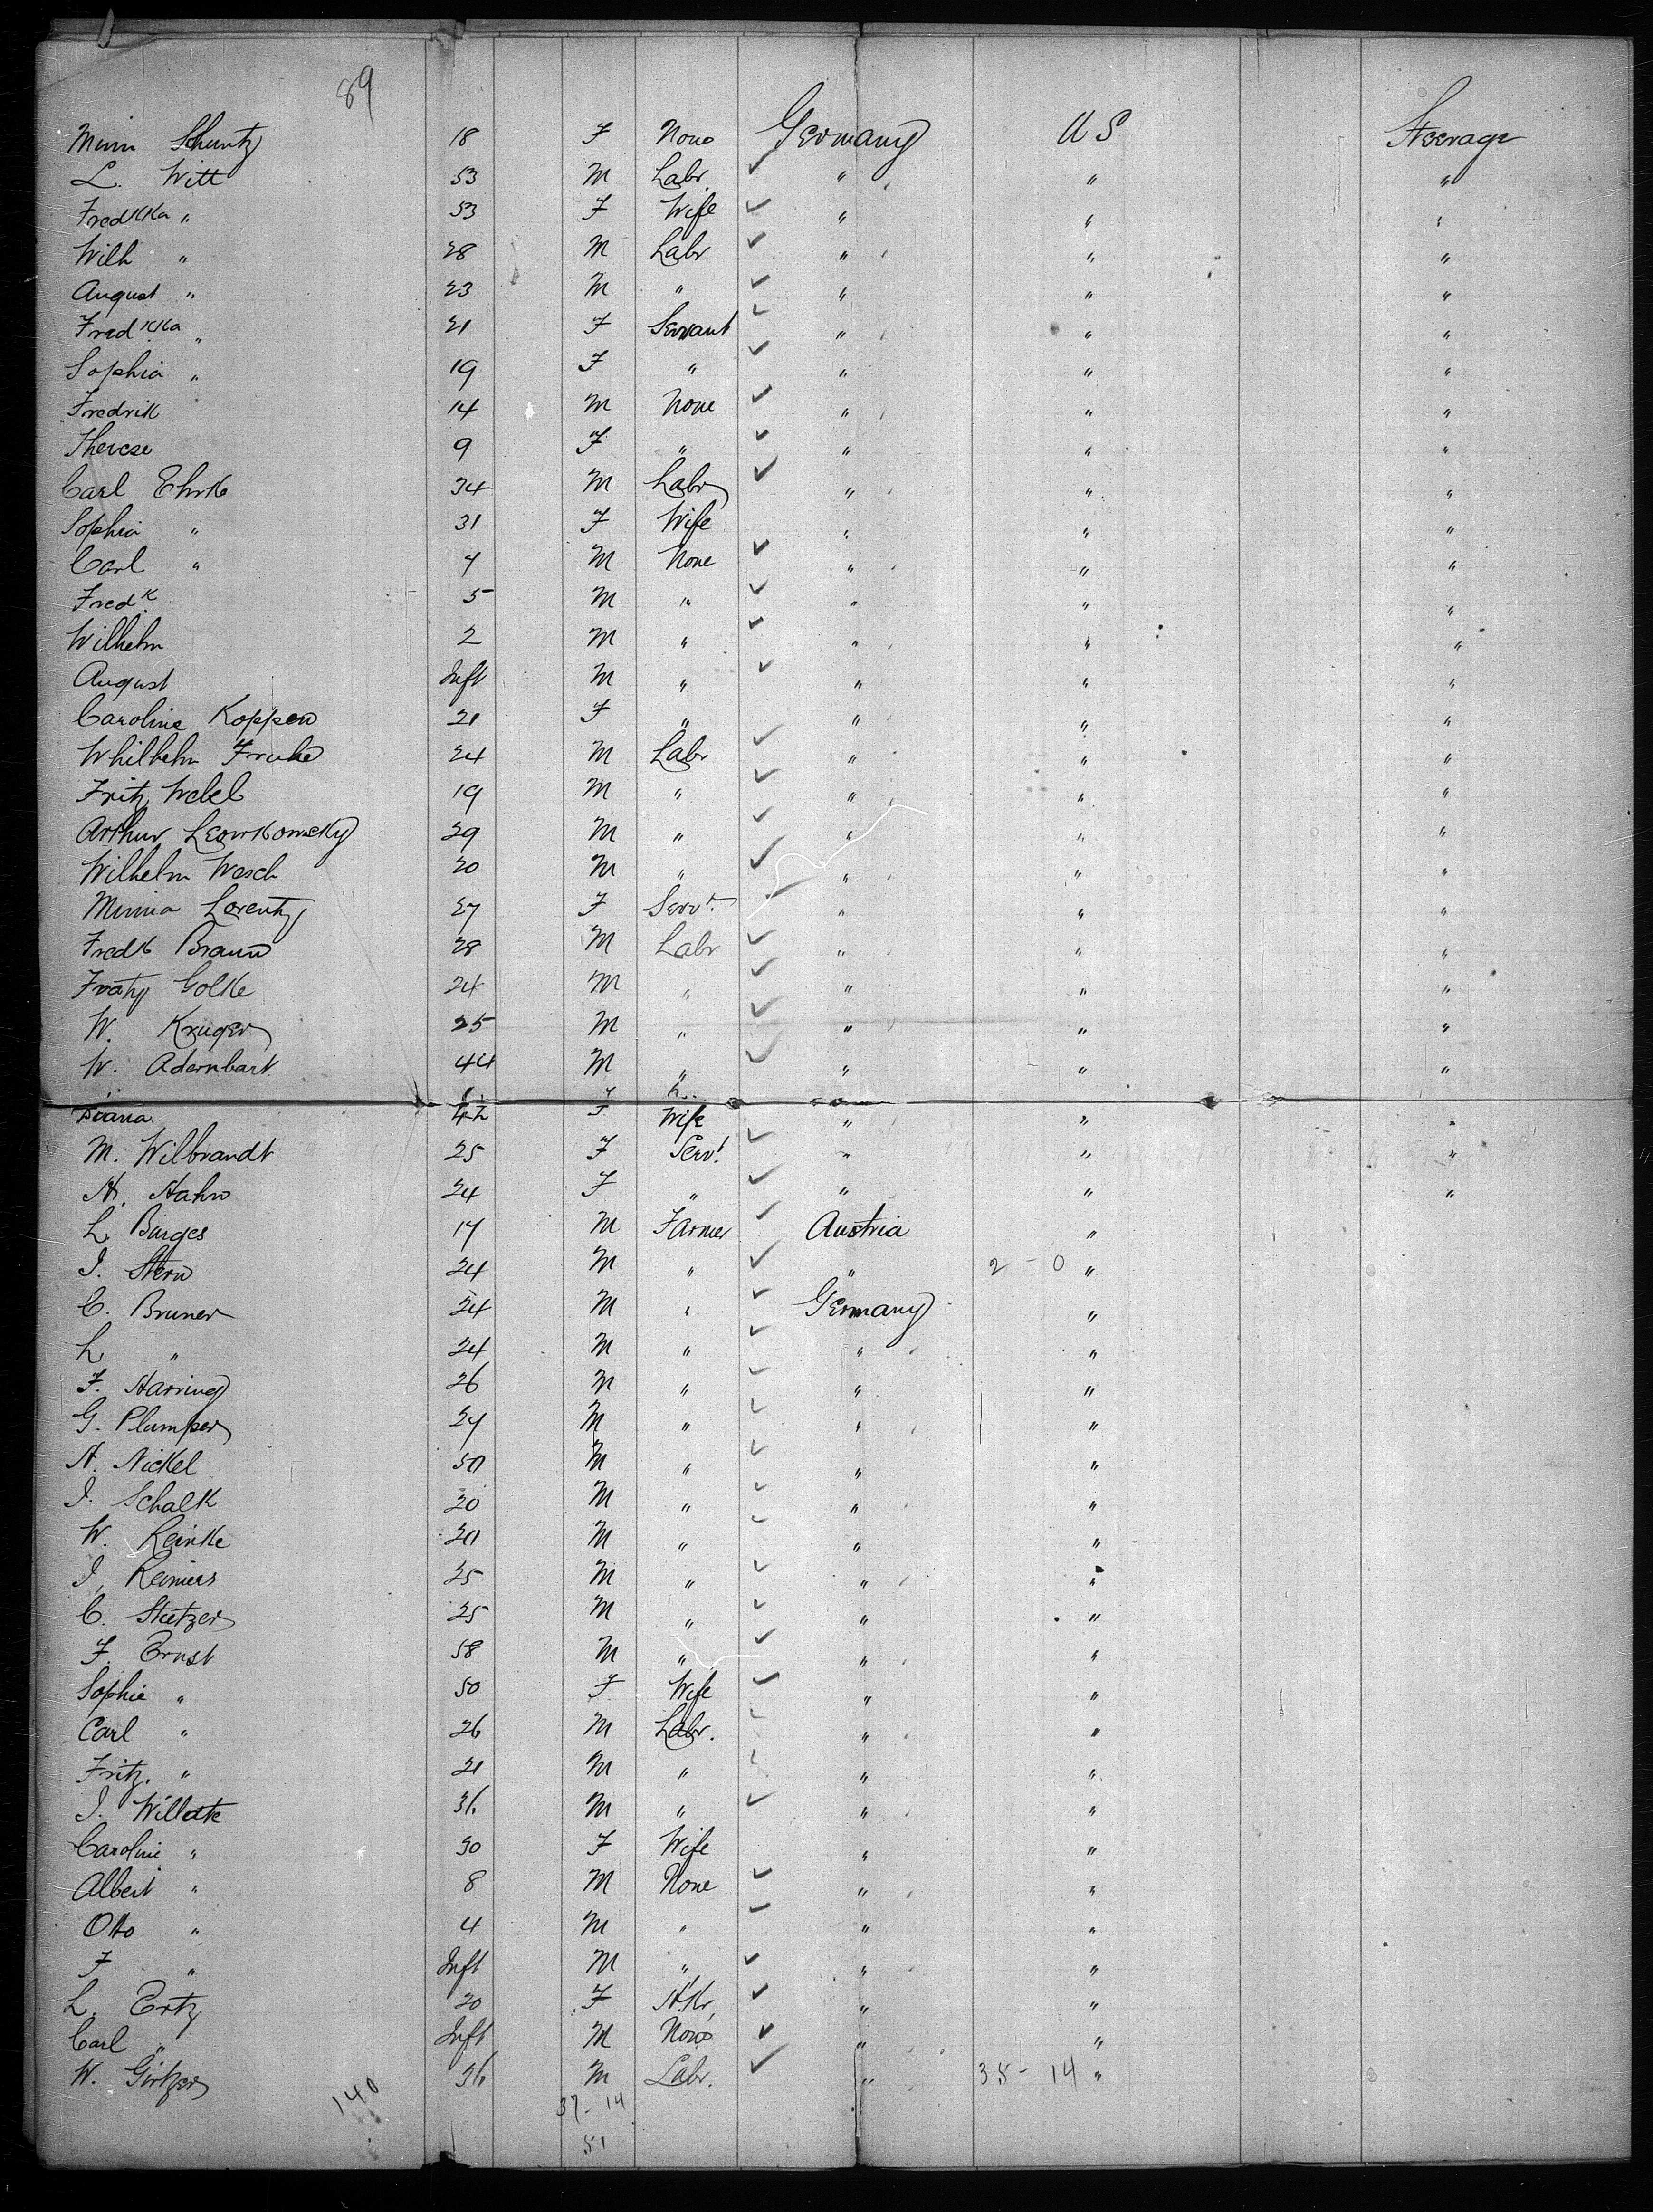 89
Minn Schuntz 18 F None Germany US Steerage
L. Witt 53 M Labr " " "
Fredkka " 53 F Wife " " "
Wilh " 28 M Labr " " "
August " 23 M " " " "
Fredkka " 21 F Servant " " "
Sophia " 19 F " " " "
Fredrik 14 M None " " "
Therese 9 F " " " "
Carl Ehrk 34 M Labr " " "
Sophia " 31 F Wife " " "
Carl " 7 M None " " "
Fredk 5 M " " " "
Wilhelm 2 M " " " "
August Inft M " " " "
Caroline Koppen 21 F " " " "
Whilhelm 24 M Labr " " "
Fritz Webel 19 M " " " "
Arthur 29 M " " " "
Wilhelm Wesch 20 M " " " "
Minna Lorentz 27 F Servt " " "
Fredk Braun 28 M Labr " " "
Golke 24 M " " " "
W. Kruger 25 M " " " "
W. Adernbart 44 M " " " "
42 F Wife " " "
M. Wilbrandt 25 F Servt. " " "
H. Hahn 24 F " " " "
L. Burges 17 M Farmer Austria "
I. Stern 24 M " " 2 - 0 "
C. Bruner 24 M " Germany "
L. " 24 M " " "
F. Harring 26 M " " "
G. Plumper 27 M " " "
H. Nickel 50 M " " "
I. Schalk 20 M " " "
W. Reinke 20 M " " "
I. Reiniers 25 M " " "
C. Stutzer 25 M " " "
F. Ernst 58 M " " "
Sophie " 50 F Wife " "
Carl " 26 M Labr. " "
Fritz. " 21 M " " "
I. Willatk 36 M " " "
Caroline " 30 F Wife " "
Albert " 8 M None " "
Otto " 4 M " " "
F " Inft M " " "
L. Ertz 20 F " "
Carl " Inft M None " "
W. Girtzer 36 M Labr. " 35 - 14 "
140 37 - 14
51